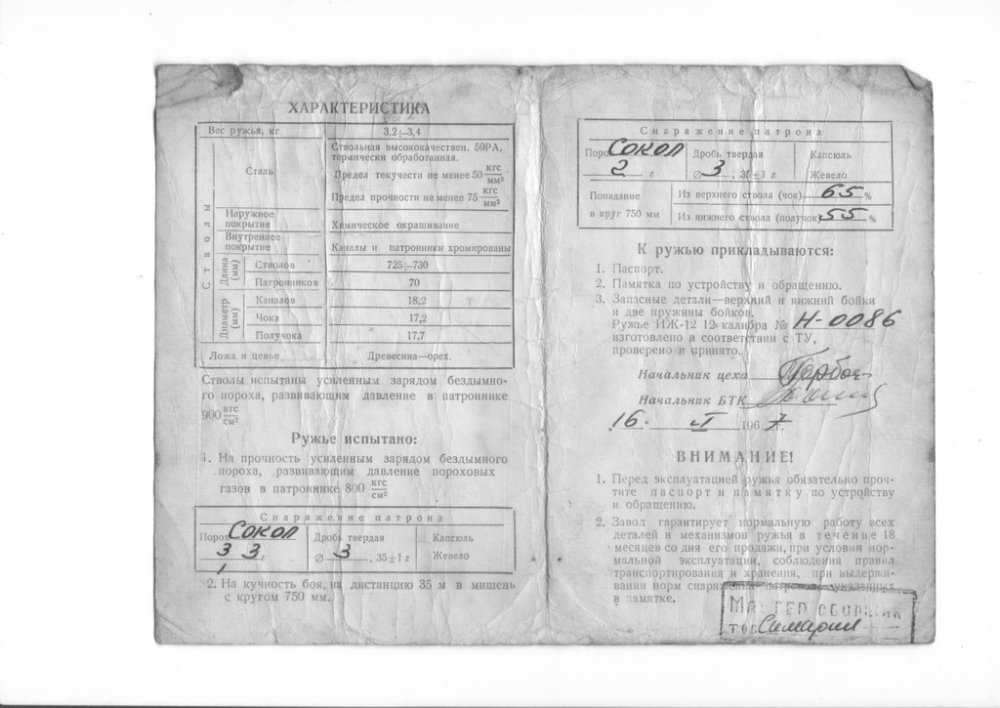 ХАРАКТЕРИСТИКА
Вес ружья, кг 3,2÷3,4
Стволы
Сталь
Ствольная высококачествен. 50РА,
термически обработанная.
Предел текучести не менее 50 кгс/мм²
Предел прочности не менее 75 кгс/мм²
Наружное покрытие Химическое окрашивание
Внутреннее покрытие Каналы и патронники хромированы
Длина (мм)
Стволов 725÷730
Патронников 70
Диаметр (мм)
Каналов 18,2
Чока 17,2
Получока 17,7
Ложа и цевье Древесина—орех.
Стволы испытаны усиленным зарядом бездымно-
го пороха, развивающим давление в патроннике
900 кгс/см²
Ружье испытано:
1. На прочность усиленным зарядом бездымного
пороха, развивающим давление пороховых
газов в патроннике 800 кгс/см²
Снаряжение патрона
Порох Сокол Дробь твердая Капсюль
3 3 г ⌀ 3, 35±1 г Жевело
2. На кучность боя, на дистанцию 35 м в мишень
с кругом 750 мм.
Снаряжение патрона
Порох Сокол Дробь твердая Капсюль
2 г ⌀ 3, 35±1 г Жевело
Попадание в круг 750 мм
Из верхнего ствола (чок) 65 %
Из нижнего ствола (получок) 55 %
К ружью прикладываются:
1. Паспорт.
2. Памятка по устройству и обращению.
3. Запасные детали—верхний и нижний бойки
и две пружины бойков.
Ружье ИЖ-12 12 калибра № Н-0086
изготовлено в соответствии с ТУ,
проверено и принято.
Начальник цеха
Начальник БТК
16. 1967 г.
ВНИМАНИЕ!
1. Перед эксплуатацией ружья обязательно проч-
тите паспорт и памятку по устройству
и обращению.
2. Завод гарантирует нормальную работу всех
деталей и механизмов ружья в течение 18
месяцев со дня его продажи, при условии нор-
мальной эксплуатации, соблюдения правил
транспортирования и хранения, при выдержи-
вании норм снаряжения патронов, указанных
в памятке.
МАСТЕР СБОРЩИК